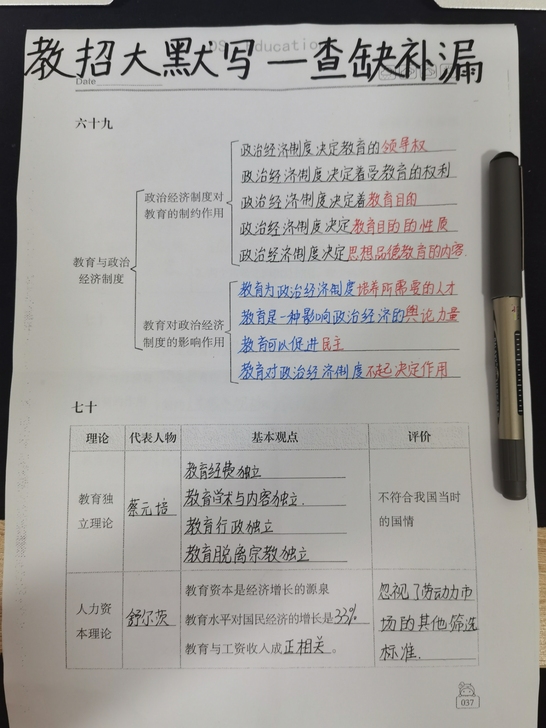 教招大默写—查缺补漏
Date
六十九
教育与政治经济制度
政治经济制度对教育的制约作用
政治经济制度决定教育的领导权
政治经济制度决定着受教育的权利
政治经济制度决定着教育目的
政治经济制度决定教育目的的性质
政治经济制度决定思想品德教育的内容.
教育对政治经济制度的影响作用
教育为政治经济制度培养所需要的人才
教育是一种影响政治经济的舆论力量
教育可以促进民主
教育对政治经济制度不起决定作用
七十
理论 代表人物 基本观点 评价
教育独立理论
蔡元培
教育经费独立
教育学术与内容独立.
教育行政独立
教育脱离宗教独立
不符合我国当时
的国情
人力资本理论
舒尔茨
教育资本是经济增长的源泉
教育水平对国民经济的增长是33%
教育与工资收入成正相关。
忽视了劳动力市
场的其他筛选
标准.
037